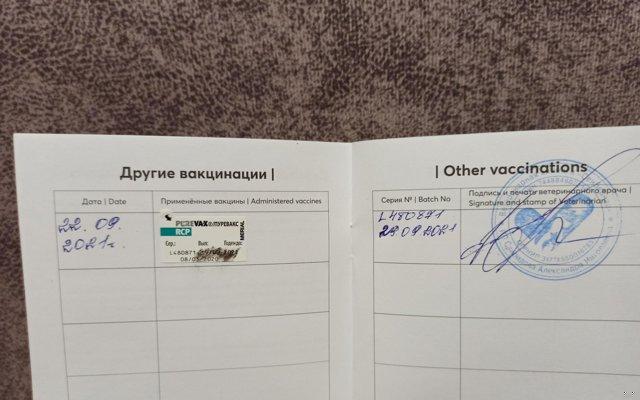 Другие вакцинации |
| Other vaccinations
Дата | Date
Применённые вакцины | Administered vaccines
Серия № | Batch No
Подпись и печать ветеринарного врача |
Signature and stamp of Veterinarian
22. 09.
2021г.
PUREVAX ПУРЕВАКС
RCP
MERIAL
Сер.: Вып: Годендо:
L480871
08/03/2020
L480871
2021